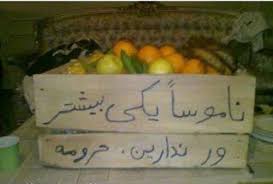 ناموساً یکی بیشتر
ور ندارین، حرومه